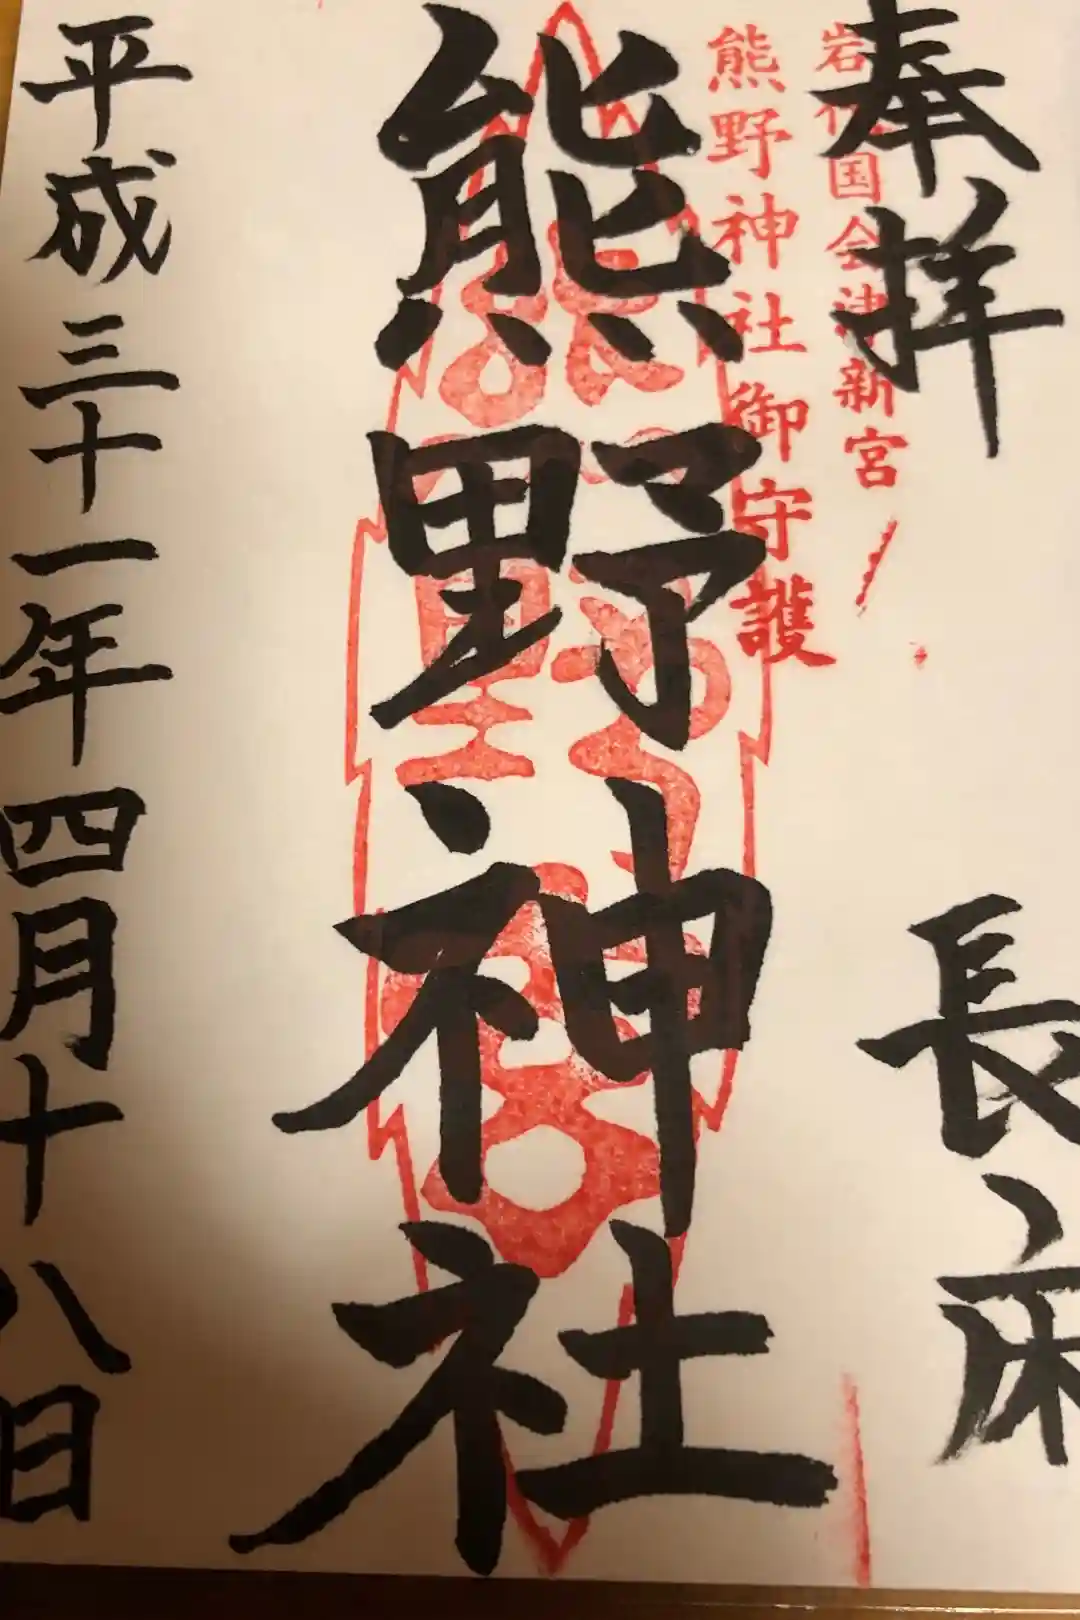 奉拝 長床
岩代国会津新宮
熊野神社御守護
熊野神社
平成三十一年四月十八日